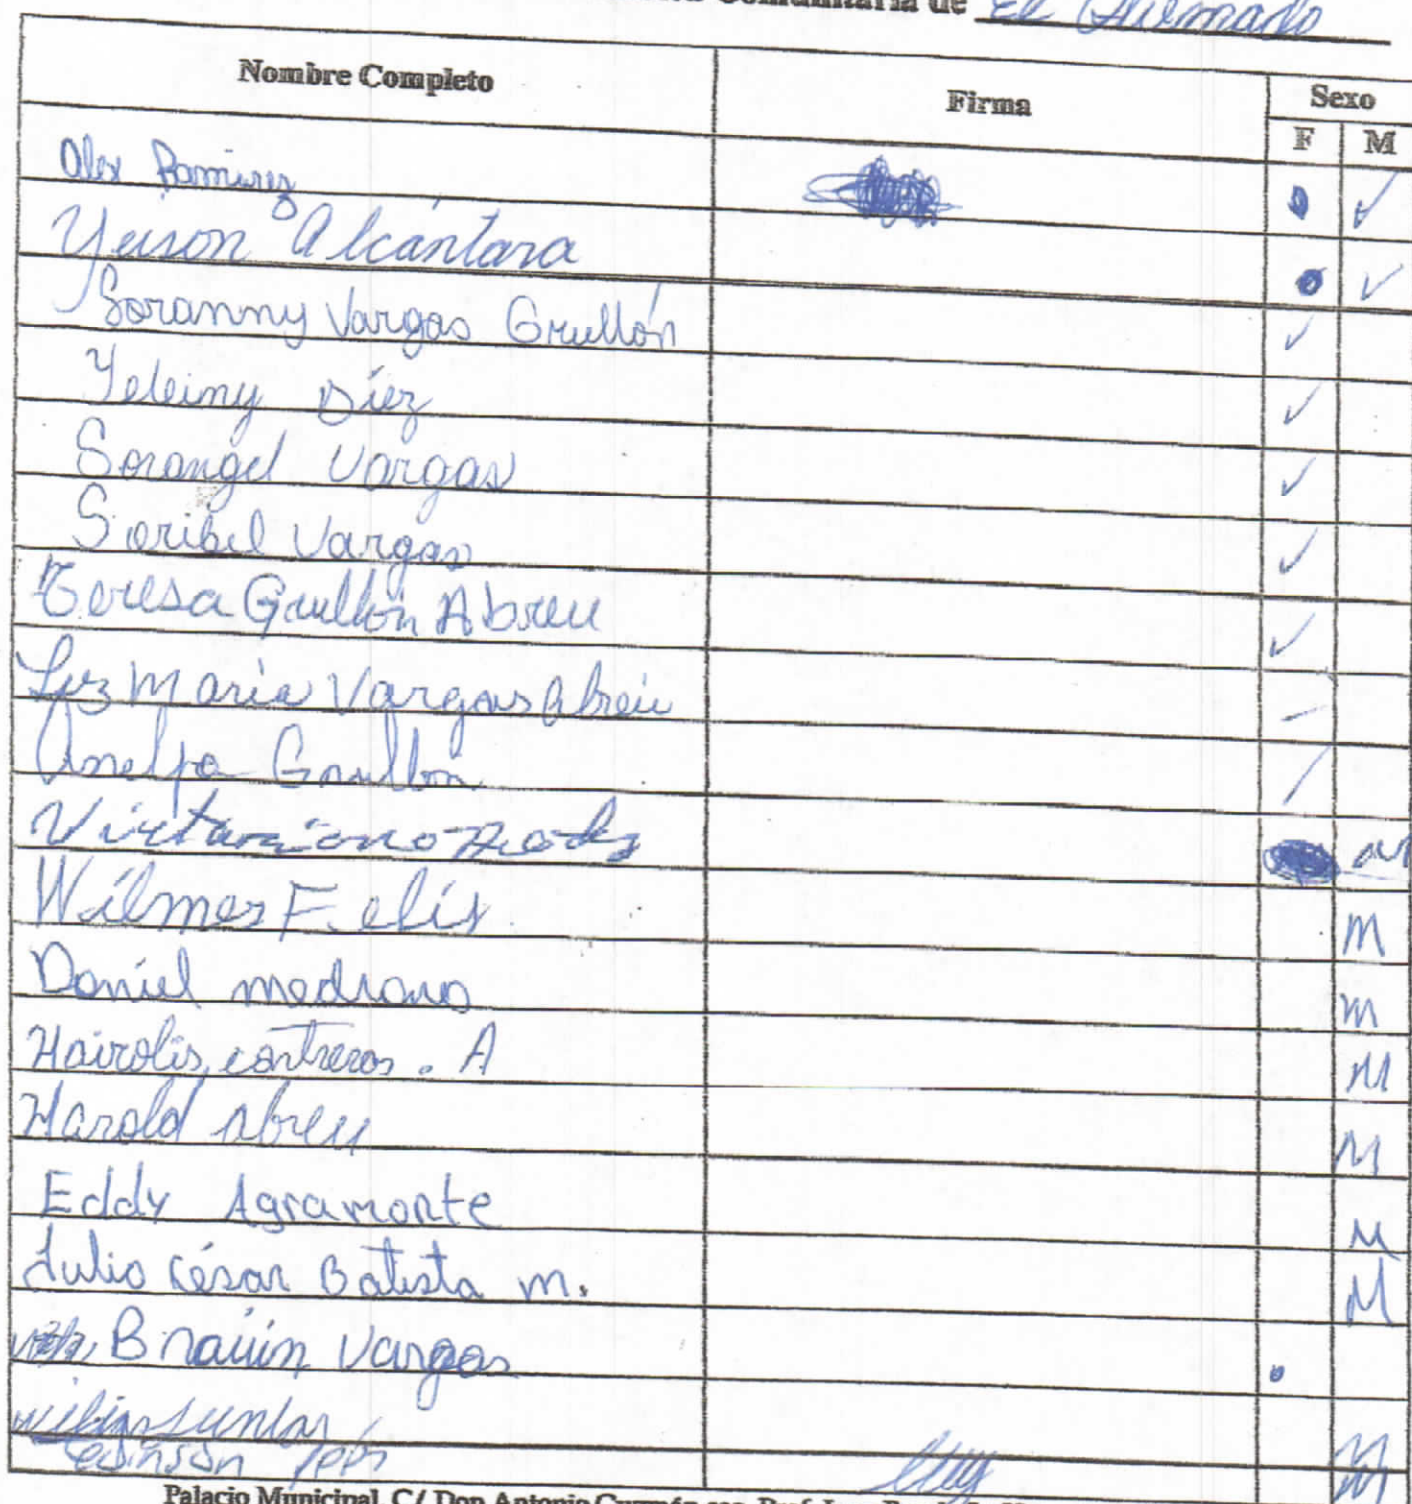 Comunitaria de El Quemado
Nombre Completo Firma Sexo
F M
Alex Ramirez ✓
Yeison Alcántara ✓
Soranny Vargas Grullón ✓
Yeleiny Díez ✓
Sorangel Vargas ✓
Soribel Vargas ✓
Teresa Grullón Abreu ✓
Luz Maria Vargas Abreu
Anelfa Grullón
Wilmer Felis M
Daniel medrano m
Hairolis contreras. A M
Harold Abreu M
Eddy Agramonte M
Julio César Batista m. M
Brauin Vargas
M
M
Palacio Municipal, C/ Don Antonio Guzmán